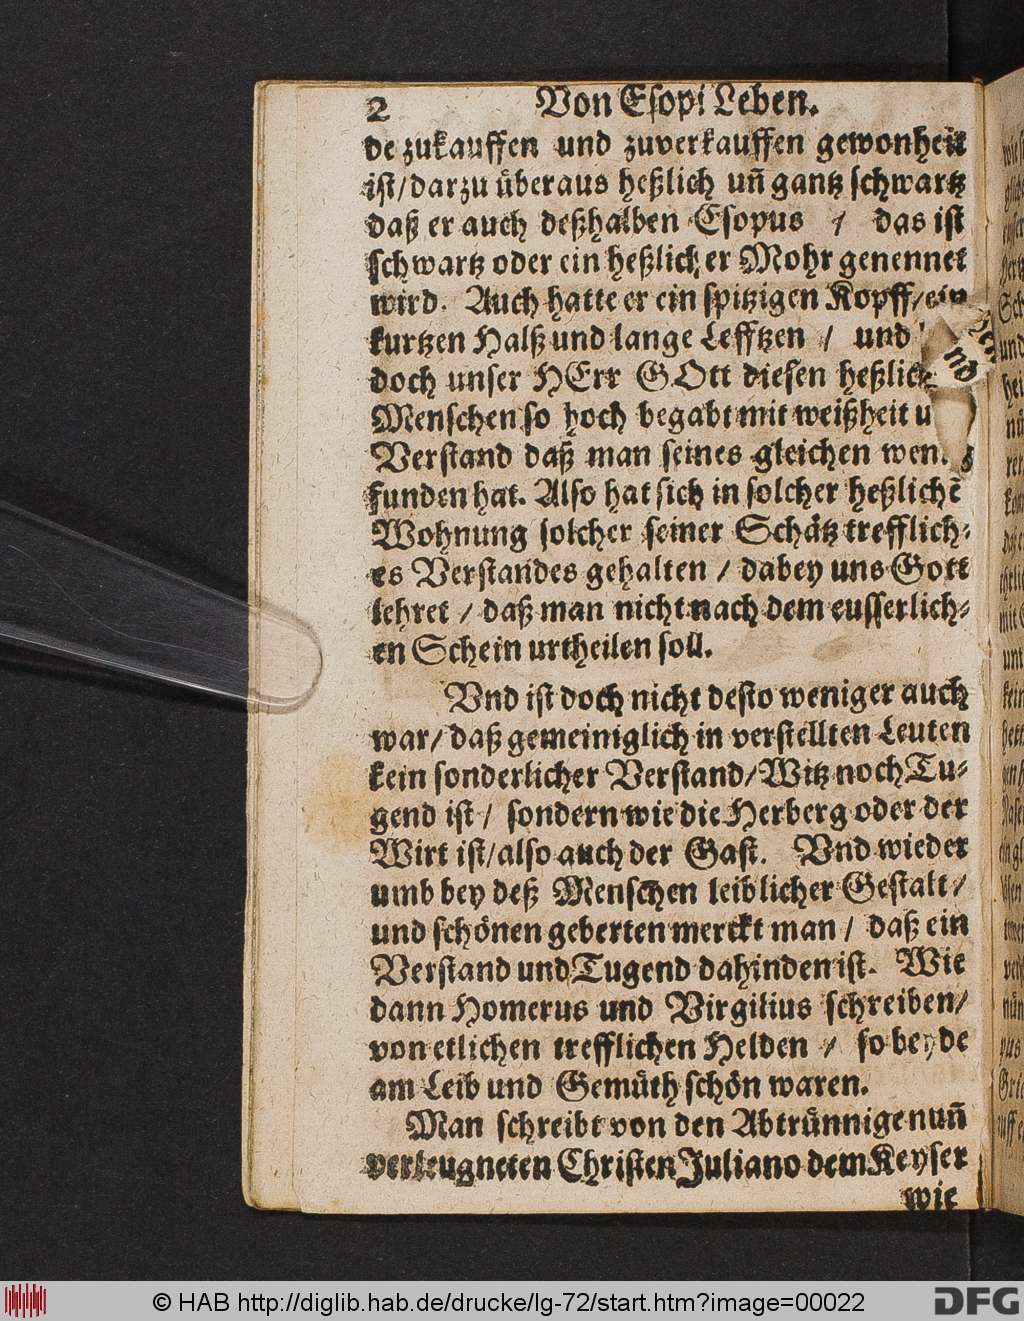 2 Von Esopi Leben.
de zukauffen und zuverkauffen gewonheit
ist/ darzu überaus heßlich uñ gantz schwartz
daß er auch deßhalben Esopus / das ist
schwartz oder ein heßlicher Mohr genennet
wird. Auch hatte er ein spitzigen Kopff/ ein
kurtzen Halß und lange Lefftzen / und
doch unser HErr GOtt diesen heßlich
Menschen so hoch begabt mit weißheit u
Verstand daß man seines gleichen wen
funden hat. Also hat sich in solcher heßlichẽ
Wohnung solcher seiner Schätz trefflich-
es Verstandes gehalten / dabey uns Gott
lehret / daß man nicht nach dem eusserlich-
en Schein urtheilen soll.
Vnd ist doch nicht desto weniger auch
war/ daß gemeiniglich in verstellten Leuten
kein sonderlicher Verstand/ Witz noch Tu-
gend ist / sondern wie die Herberg oder der
Wirt ist/ also auch der Gast. Vnd wieder
umb bey deß Menschen leiblicher Gestalt /
und schönen geberten merckt man / daß ein
Verstand und Tugend dahinden ist. Wie
dann Homerus und Virgilius schreiben/
von etlichen trefflichen Helden / so beyde
am Leib und Gemüth schön waren.
Man schreibt von den Abtrünnigen uñ
verleugneten Christen Juliano dem Keyser
wie
© HAB http://diglib.hab.de/drucke/lg-72/start.htm?image=00022
DFG